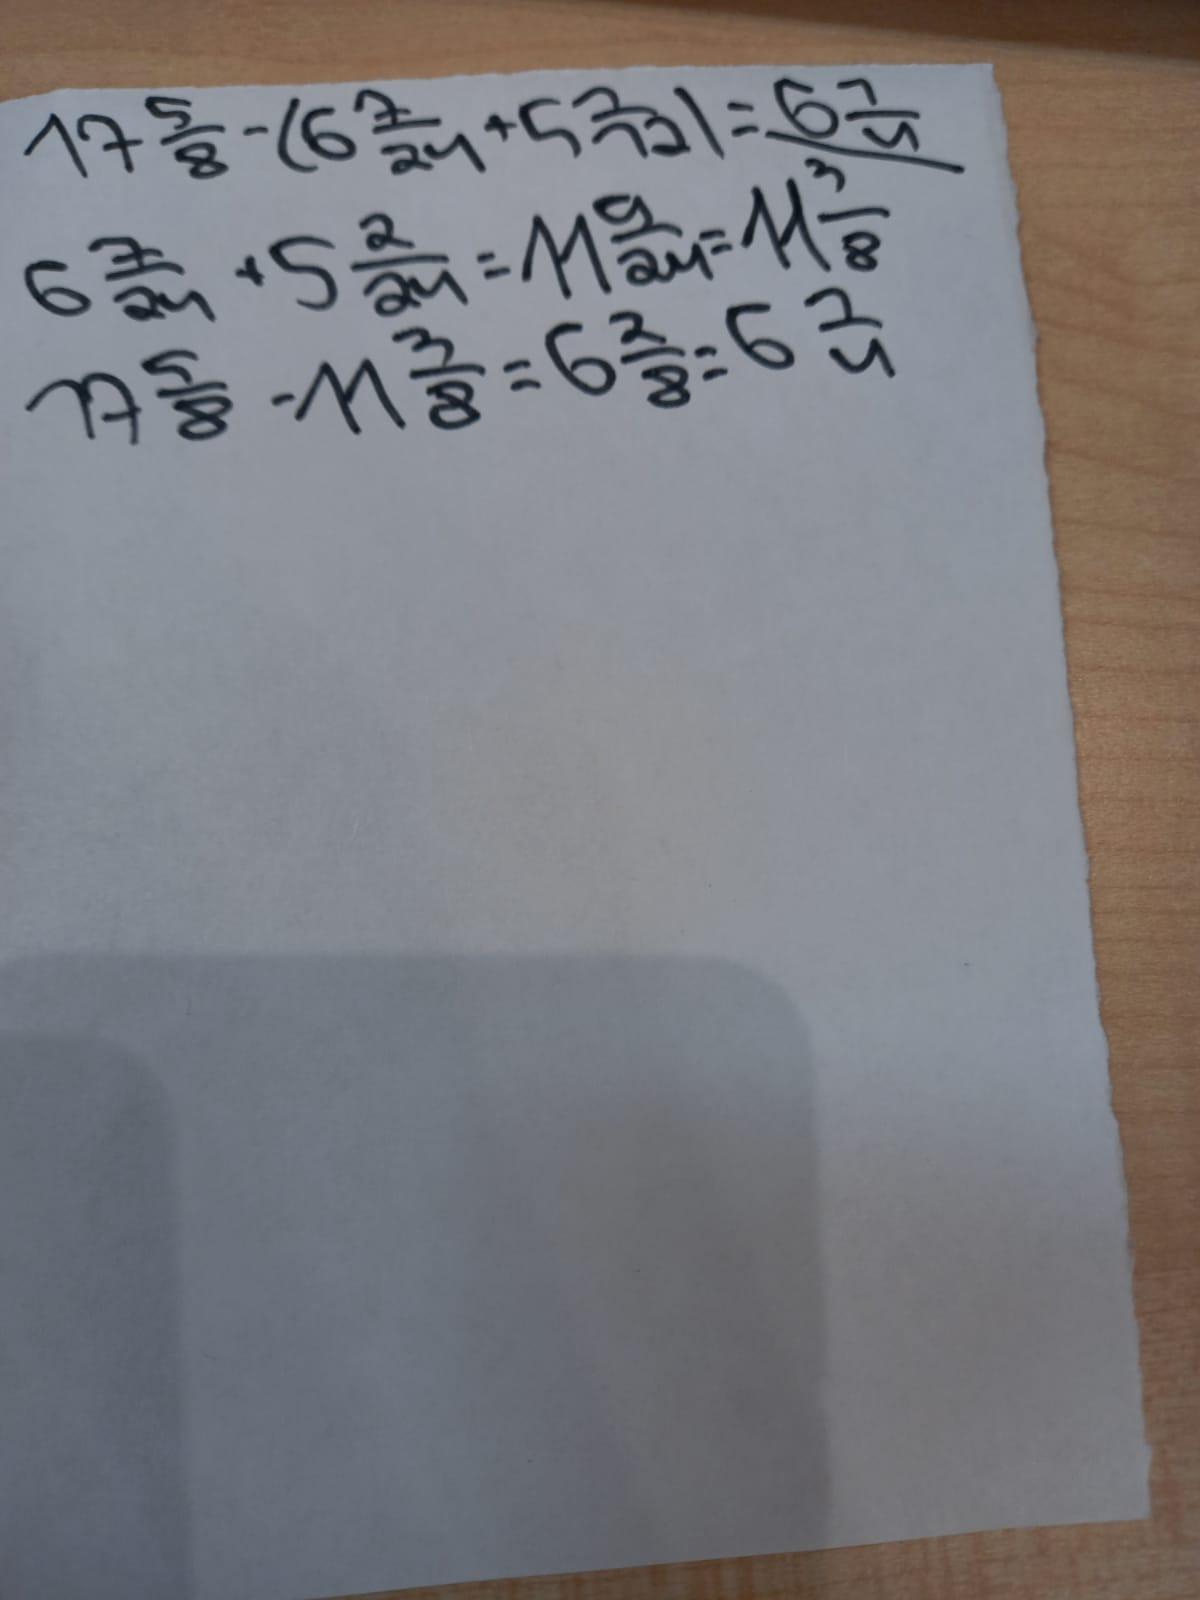 17 5/8 - (6 7/24 + 5 1/12) = 6 1/4
6 7/24 + 5 2/24 = 11 9/24 = 11 3/8
17 5/8 - 11 3/8 = 6 2/8 = 6 1/4